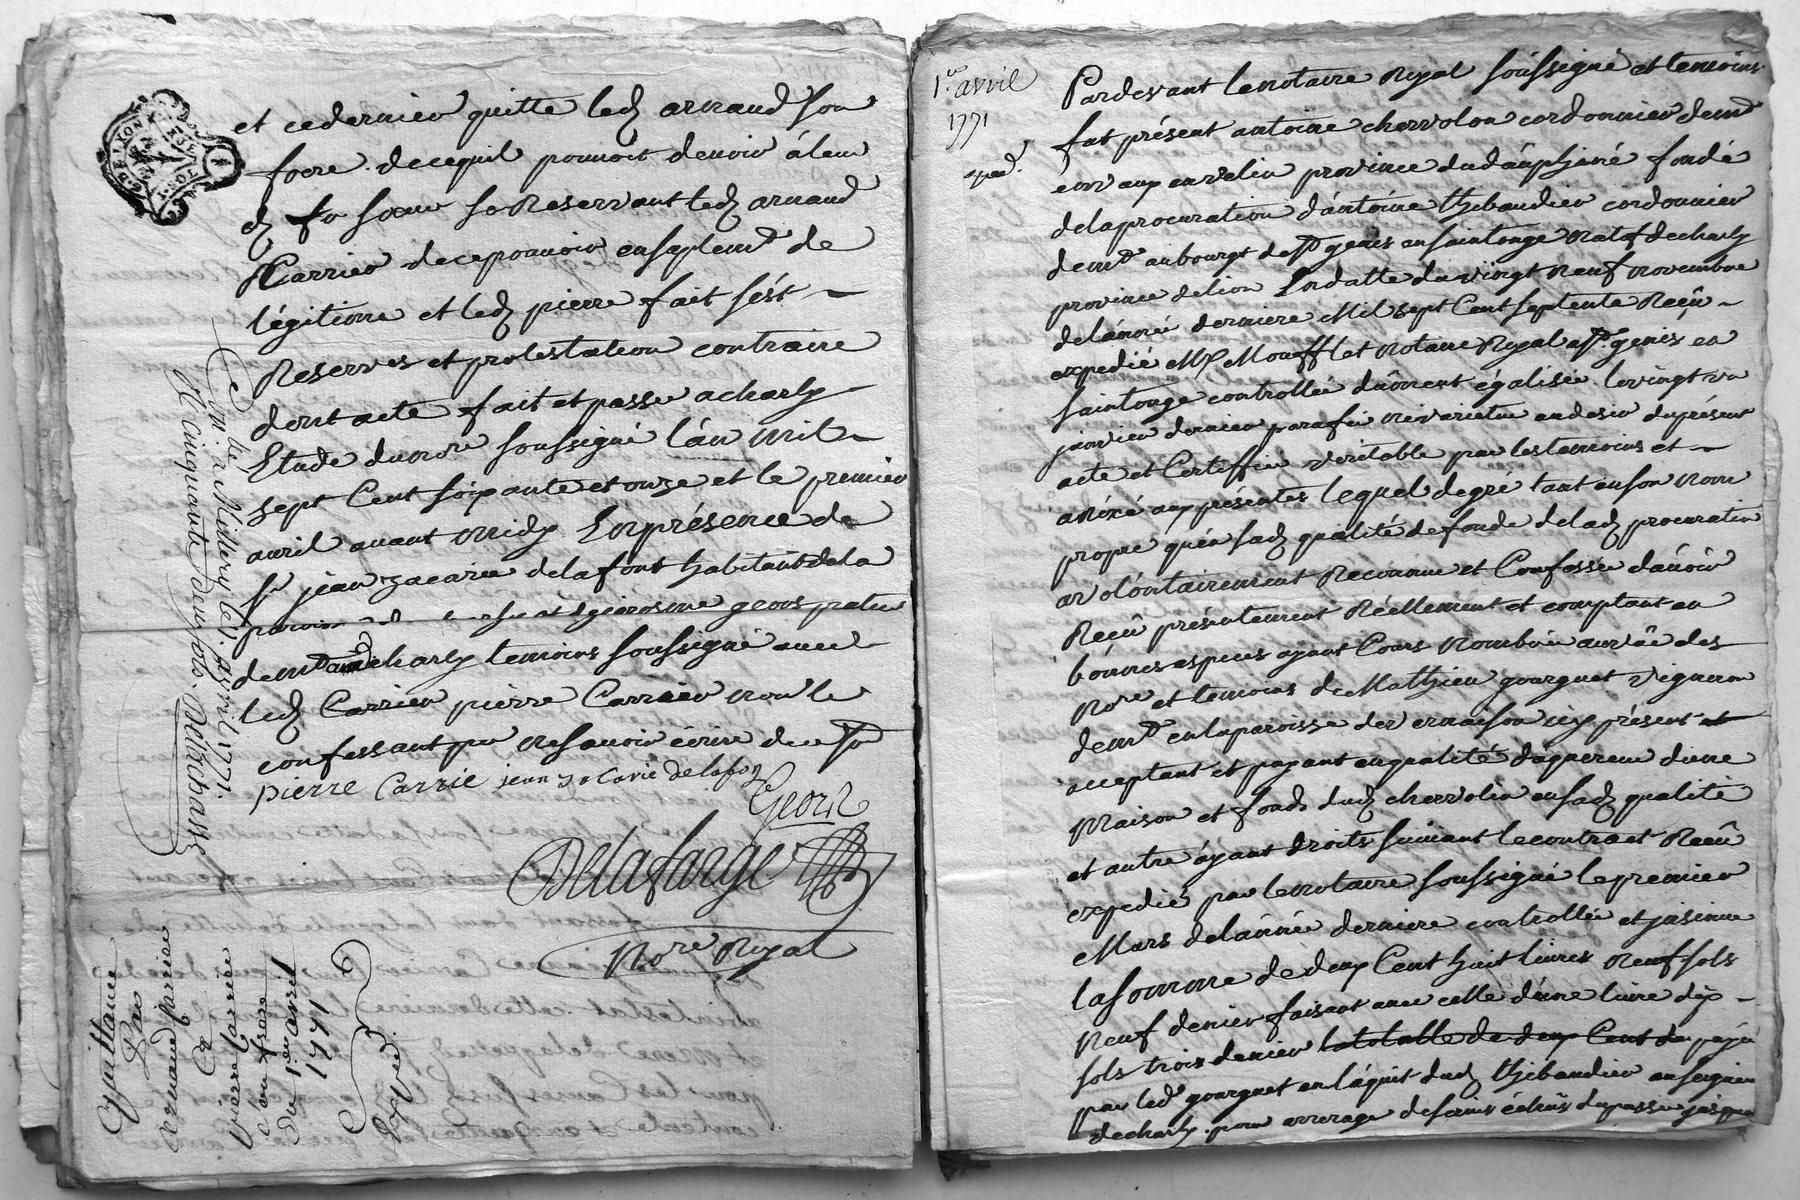 et ce dernier quitte led arnaud son
frere de ce quil pouvoit devoir à leur
so Reservant led arnaud
Carrier de ce pouvoir en suplemt de
légitime et led pierre fait sest
Reserves et protestation contraire
dont acte fait et passé a charly
Etude du nore soussigné l'an mil
sept Cent soixante et onze et le premier
avril avant midy En présence de
sr jean zacarie delafont habitant de la
geors praticien
demt charly temoins soussigné avec
led Carrier pierre Carrier non le
confessant pour ne savoir écrire de ce
pierre Carrie jean zacarie delafon
Geors
Delafarge
Nore Royal
Con. à Millery le 1. avril 1771.
R cinquante deux sols. Delachasse
Quittance
Par
arnaud Carrier
à
pierre Carrier
son frere
Du 1er avril
1771
Exped.
G DE LYON
1er avril
1771
exped.
Pardevant le notaire Royal soussigné et temoins
fut présent antoine chervolon cordonnier demt
en velin province du dauphiné fondé
de la procuration d'antoine thibaudier cordonnier
demt au bourgt de st genis en saintonge natif de charly
province de lion En datte du vingt neuf novembre
de l'année derniere Mil sept Cent septente Reçû
expedié Me Moufflet notaire Royal a st genis en
saintonge controllée dûement égalisée le vingt un
janvier dernier parafé ne varietur au desir du présent
acte et Certiffié véritable par les temoins et
anéxé aux présentes lequel de gré tant en son nom
propre qu'en sad qualité de fondé de lad procuration
a volontairement Reconnu et Confessé d'avoir
Reçû présentement Réellement et comptant en
bonnes especes ayant Cours nombrée au vûe des
nore et temoins de Mathieu gourguet vigneron
demt en la paroisse de vernaison icy présent et
acceptant et payant en qualité d'aquereur d'une
Maison et fonds dud chervolon en sad qualité
et autre ayant droits suivant le contract Reçû
expedié par le notaire soussigné le premier
Mars de l'année derniere controllée et insinué
la somme de deux Cent huit livres neuf sols
neuf denier faisant avec celle d'une livre dix
sols trois denier la totalle de deux Cent dix payé
par led gourguet en l'aquit dud thibaudier au seigneur
de charly pour arrerage de servis échûs du passé jusqua